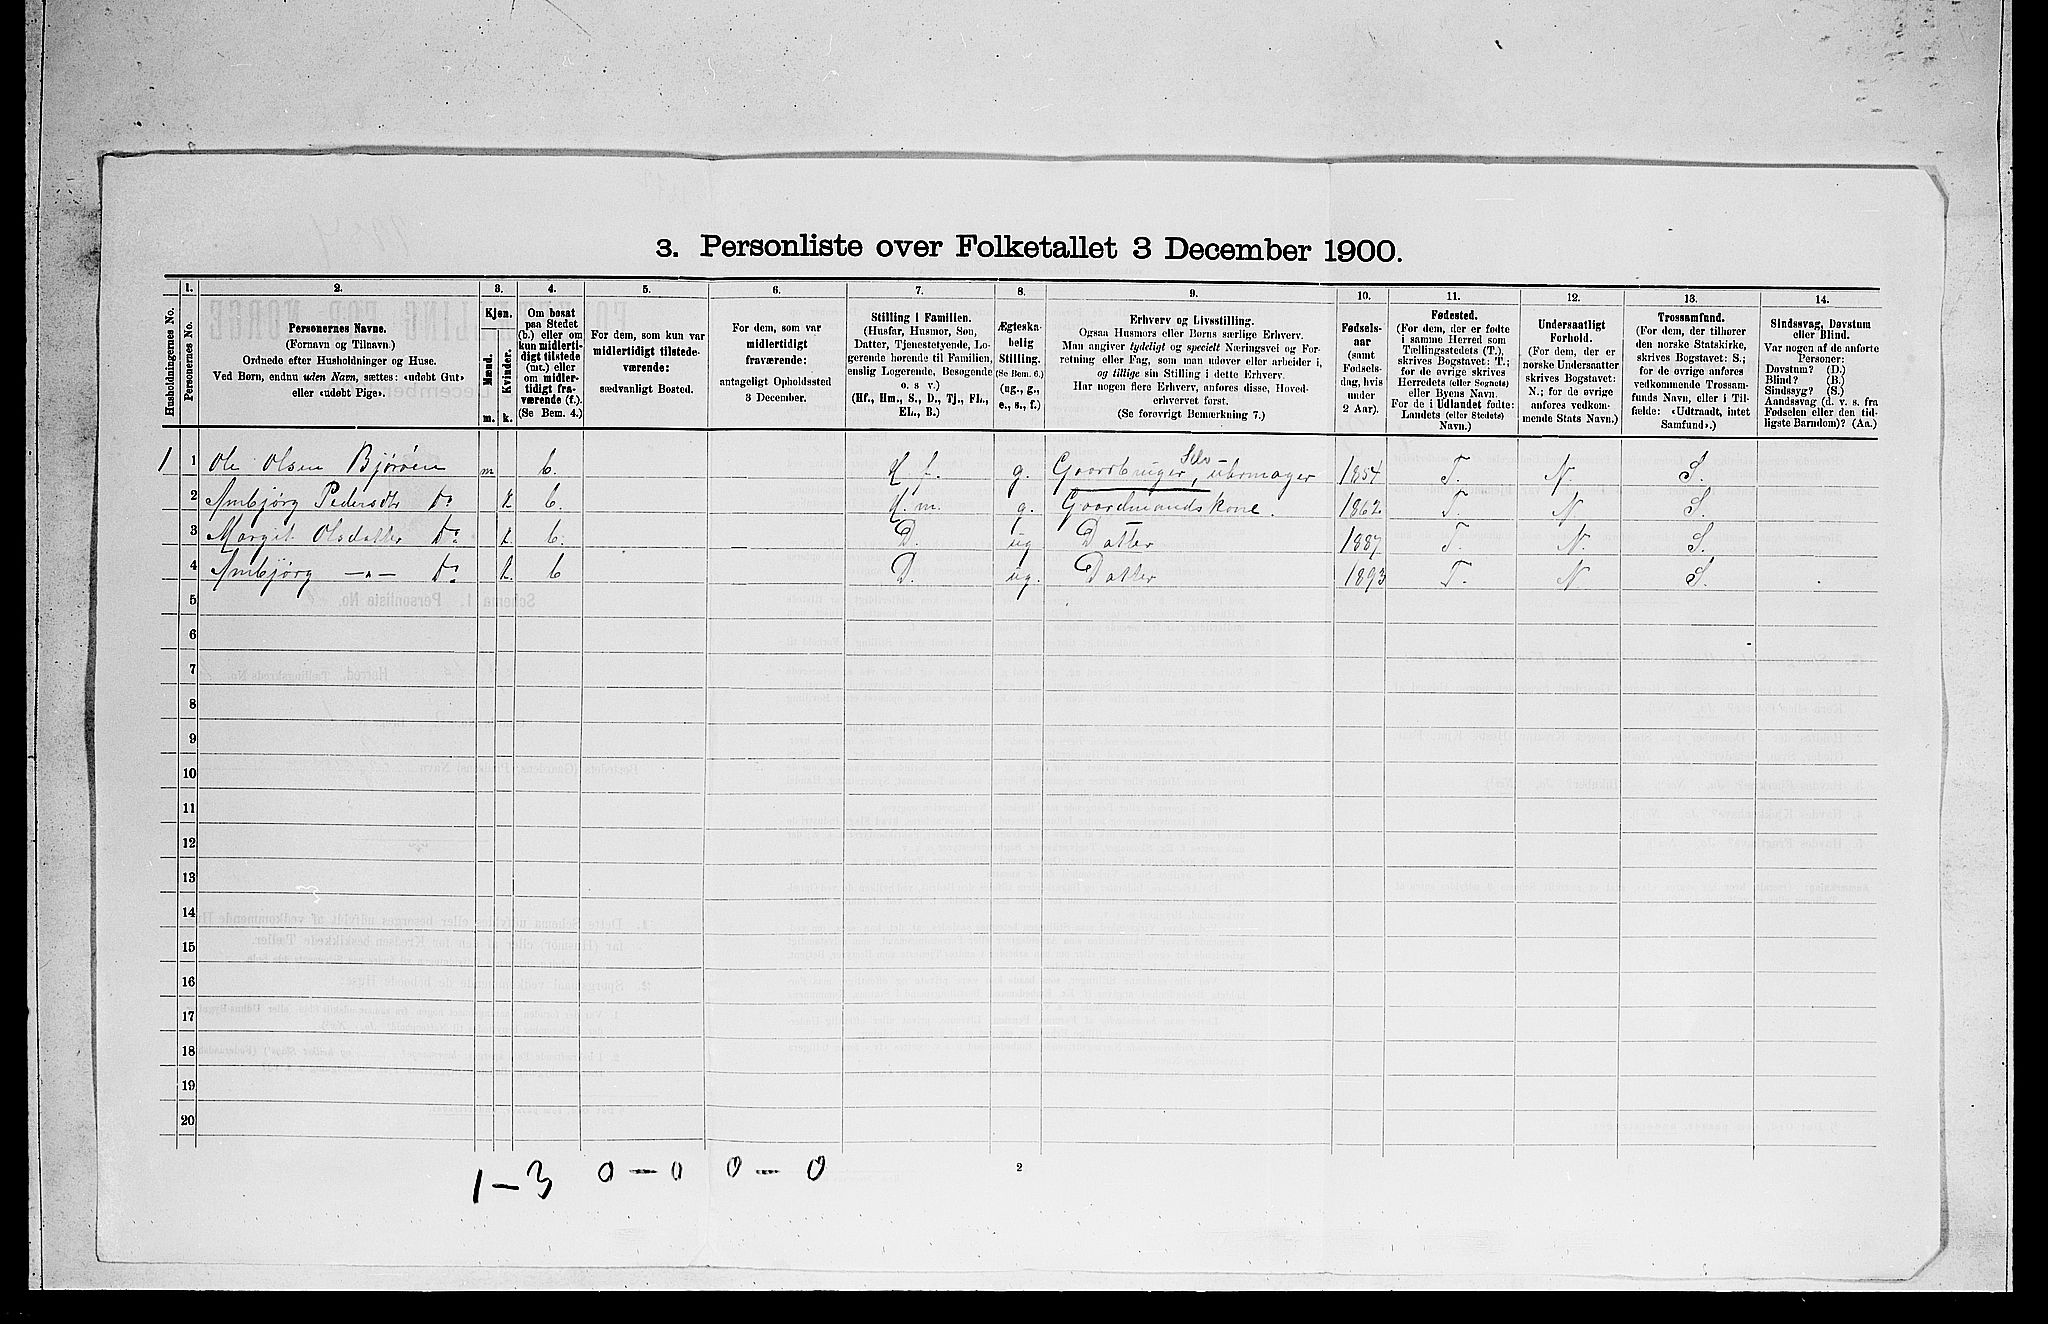 3. Personliste over Folketallet 3 December 1900.
Husholdningernes No.
1.
Personernes No.
2.
Personernes Navne.
(Fornavn og Tilnavn.)
Ordnede efter Husholdninger og Huse.
Ved Børn, endnu uden Navn, sættes: «udøbt Gut»
eller «udøbt Pige».
3.
Kjøn.
Mænd.
Kvinder.
m. k.
4.
Om bosat
paa Stedet
(b.) eller om
kun midlerti-
digt tilstede
(mt.) eller
om midler-
tidigt fra-
værende (f.).
(Se Bem. 4.)
5.
For dem, som kun var
midlertidigt tilstede-
værende:
sædvanligt Bosted.
6.
For dem, som var
midlertidigt
fraværende:
antageligt Opholdssted
3 December.
7.
Stilling i Familien.
(Husfar, Husmor, Søn,
Datter, Tjenestetyende, Lo-
gerende hørende til Familien,
enslig Logerende, Besøgende
o. s v.)
(Hf., Hm., S., D., Tj., FL.,
EL., B.)
8.
Ægteska-
belig
Stilling.
(Se Bem. 6.)
(ug., g.,
e., s., f.)
9.
Erhverv og Livsstilling.
Ogsaa Husmors eller Børns særlige Erhverv.
Man angiver tydeligt og specielt Næringsvei og For-
retning eller Fag, som man udøver eller arbeider i,
og tillige sin Stilling i dette Erhverv.
Har nogen flere Erhverv, anføres disse, Hoved-
erhvervet først.
(Se forøvrigt Bemærkning 7.)
10.
Fødsels-
aar
(samt
Fødsels-
dag, hvis
under
2 Aar).
11.
Fødested.
(For dem, der er fødte
i samme Herred som
Tællingsstedets (T.),
skrives Bogstavet: T.;
for de øvrige skrives
Herredets (eller Sognets)
eller Byens Navn.
For de i Udlandet fødte:
Landets (eller Stedets)
Navn.)
12.
Undersaatligt
Forhold.
(For dem, der er
norske Undersaatter
skrives Bogstavet:
N.; for de øvrige
anføres vedkom-
mende Stats Navn.)
13.
Trossamfund.
(For dem, der tilhører
den norske Statskirke,
skrives Bogstavet: S.;
for de øvrige anføres
vedkommende Trossam-
funds Navn, eller i Til-
fælde: «Udtraadt, intet
Samfund».)
14.
Sindssvag, Døvstum
eller Blind.
Var nogen af de anførte
Personer:
Døvstum? (D.)
Blind? (B.)
Sindssyg? (S.)
Aandssvag (d. v. s. fra
Fødselen eller den tid-
ligste Barndom)? (Aa.)
1 1 Ole Olsen Bjørøen m b. H f. g. Gaardbruger, Selv uhrmager 1854 T. N. S.
2 Ambjørg Pedersdtr do k b. H. m. g. Gaardmandskone. 1862 T. N S.
3 Margit Olsdatter do k. b. D. ug Datter 1887 T. N. S.
4 Ambjørg —„— do k. b D. ug. Datter 1893 T. N S.
5
6
7
8
9
10
11
12
13
14
15
16
17
18
19
20
1–3 0–0 0–0
2